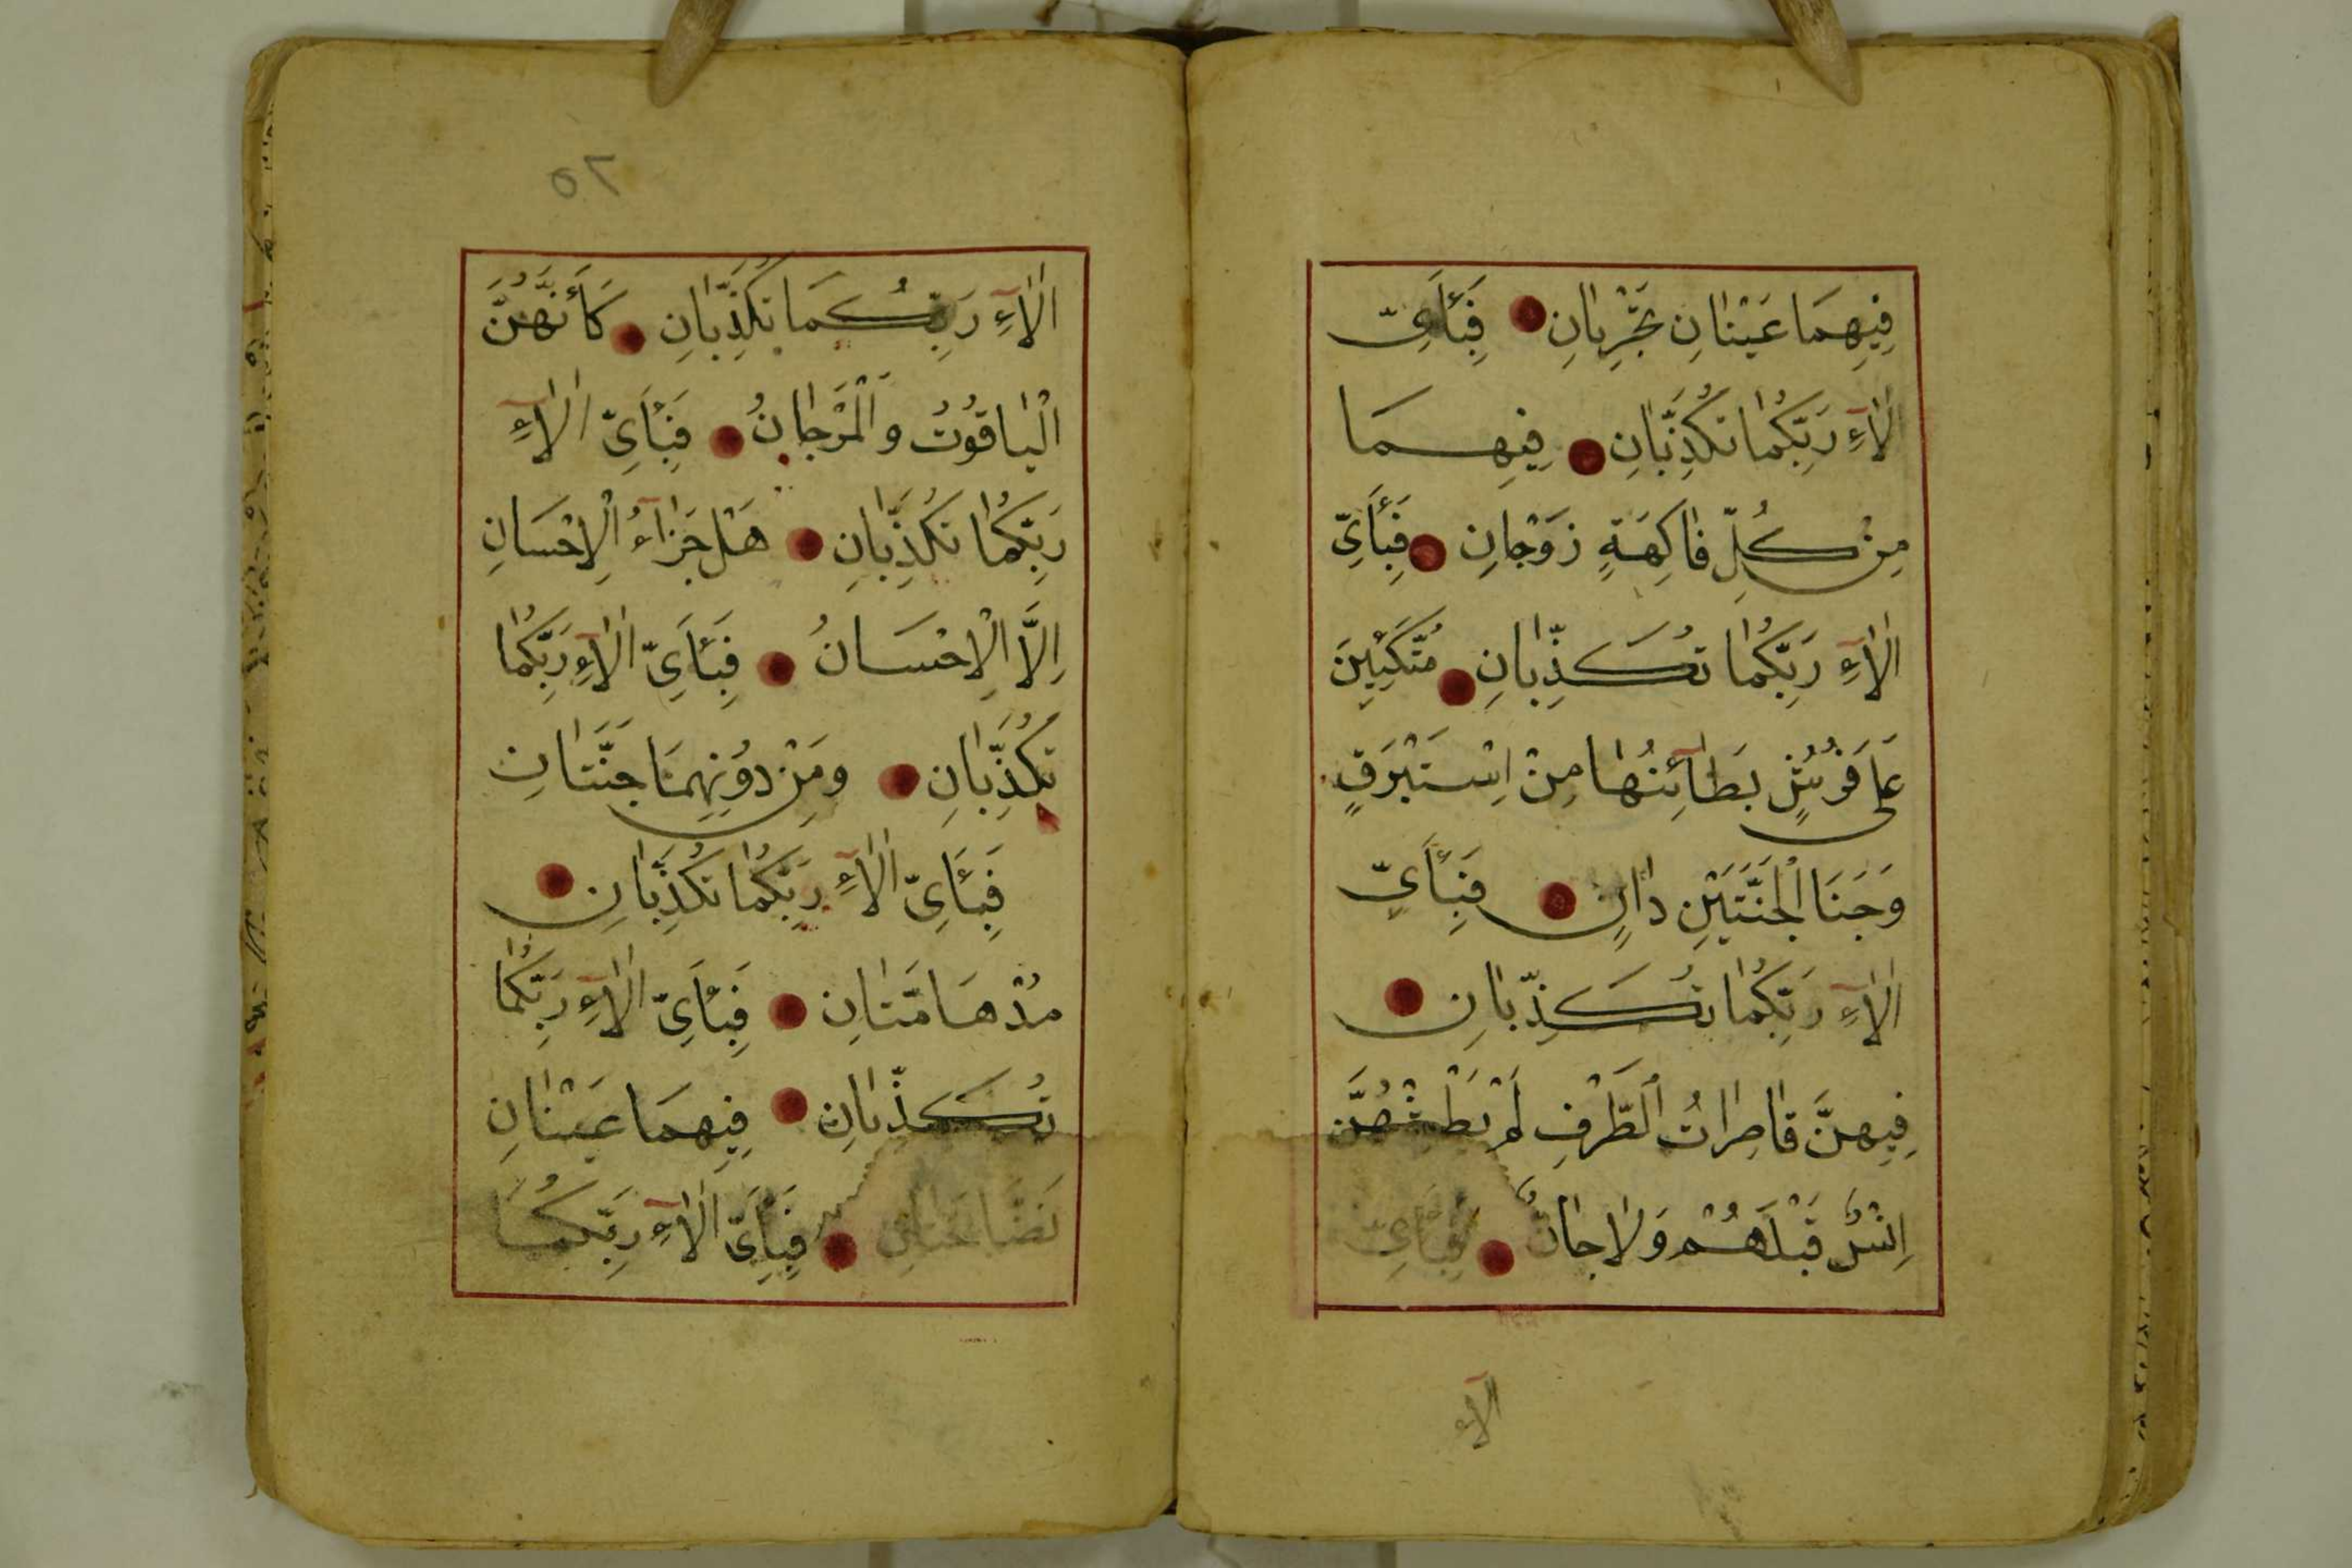 فِيهِمَا عَيْنٰانِ تَجْرِيٰانِ فَبِأَىِّ
اٰلآءِ رَبِّكُمٰا تُكَذِّبٰانِ فِيهِمَا
مِنْ كُلِّ فٰاكِهَةٍ زَوْجٰانِ فَبِأَىِّ
اٰلآءِ رَبِّكُمٰا تُكَذِّبٰانِ مُتَّكِئِينَ
عَلٰى فُرُشٍ بَطٰآئِنُهٰا مِنْ اِسْتَبْرَقٍ
وَجَنَا الْجَنَّتَيْنِ دٰانٍ فَبِأَيِّ
اٰلآءِ رَبِّكُمٰا تُكَذِّبٰانِ
فِيهِنَّ قٰاصِرٰاتُ الطَّرْفِ لَمْ يَطْمِثْهُنَّ
اِنْسٌ قَبْلَهُمْ وَلٰا جٰانٌّ فَبِأَىِّ
اٰلآءِ
٥٢
اٰلآءِ رَبِّكُمَا تُكَذِّبٰانِ كَأَنَّهُنَّ
الْيٰاقُوتُ وَالْمَرْجٰانُ فَبِأَىِّ اٰلآءِ
رَبِّكُمٰا تُكَذِّبٰانِ هَلْ جَزٰآءُ الْاِحْسَانِ
اِلَّا الْاِحْسَانُ فَبِأَىِّ اٰلآءِ رَبِّكُمٰا
تُكَذِّبٰانِ وَمِنْ دُونِهِمَا جَنَّتٰانِ
فَبِأَىِّ اٰلآءِ رَبِّكُمٰا تُكَذِّبٰانِ
مُدْهَامَّتٰانِ فَبِأَىِّ اٰلآءِ رَبِّكُمٰا
تُكَذِّبٰانِ فِيهِمَا عَيْنٰانِ
نَضَّاخَتٰانِ فَبِأَىِّ اٰلآءِ رَبِّكُمَا